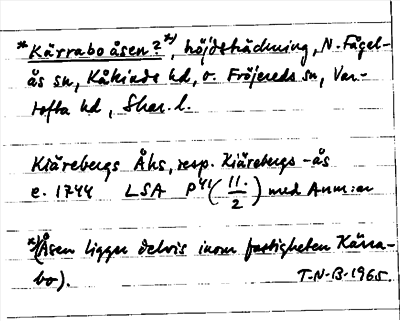 *Kärrabo åsen?*), höjdsträckning, N. Fågel-
ås sn, Kåkinds hd, o. Fröjereds sn, Var-
tofta hd, Skar. l.
Kiärebergs Åhs, resp. Kiärebergs -ås
e. 1744 LSA P41 (11:/2) med Anm:ar
*) (Åsen ligger delvis inom fastigheten Kärra-
bo). T-N-B-1965.